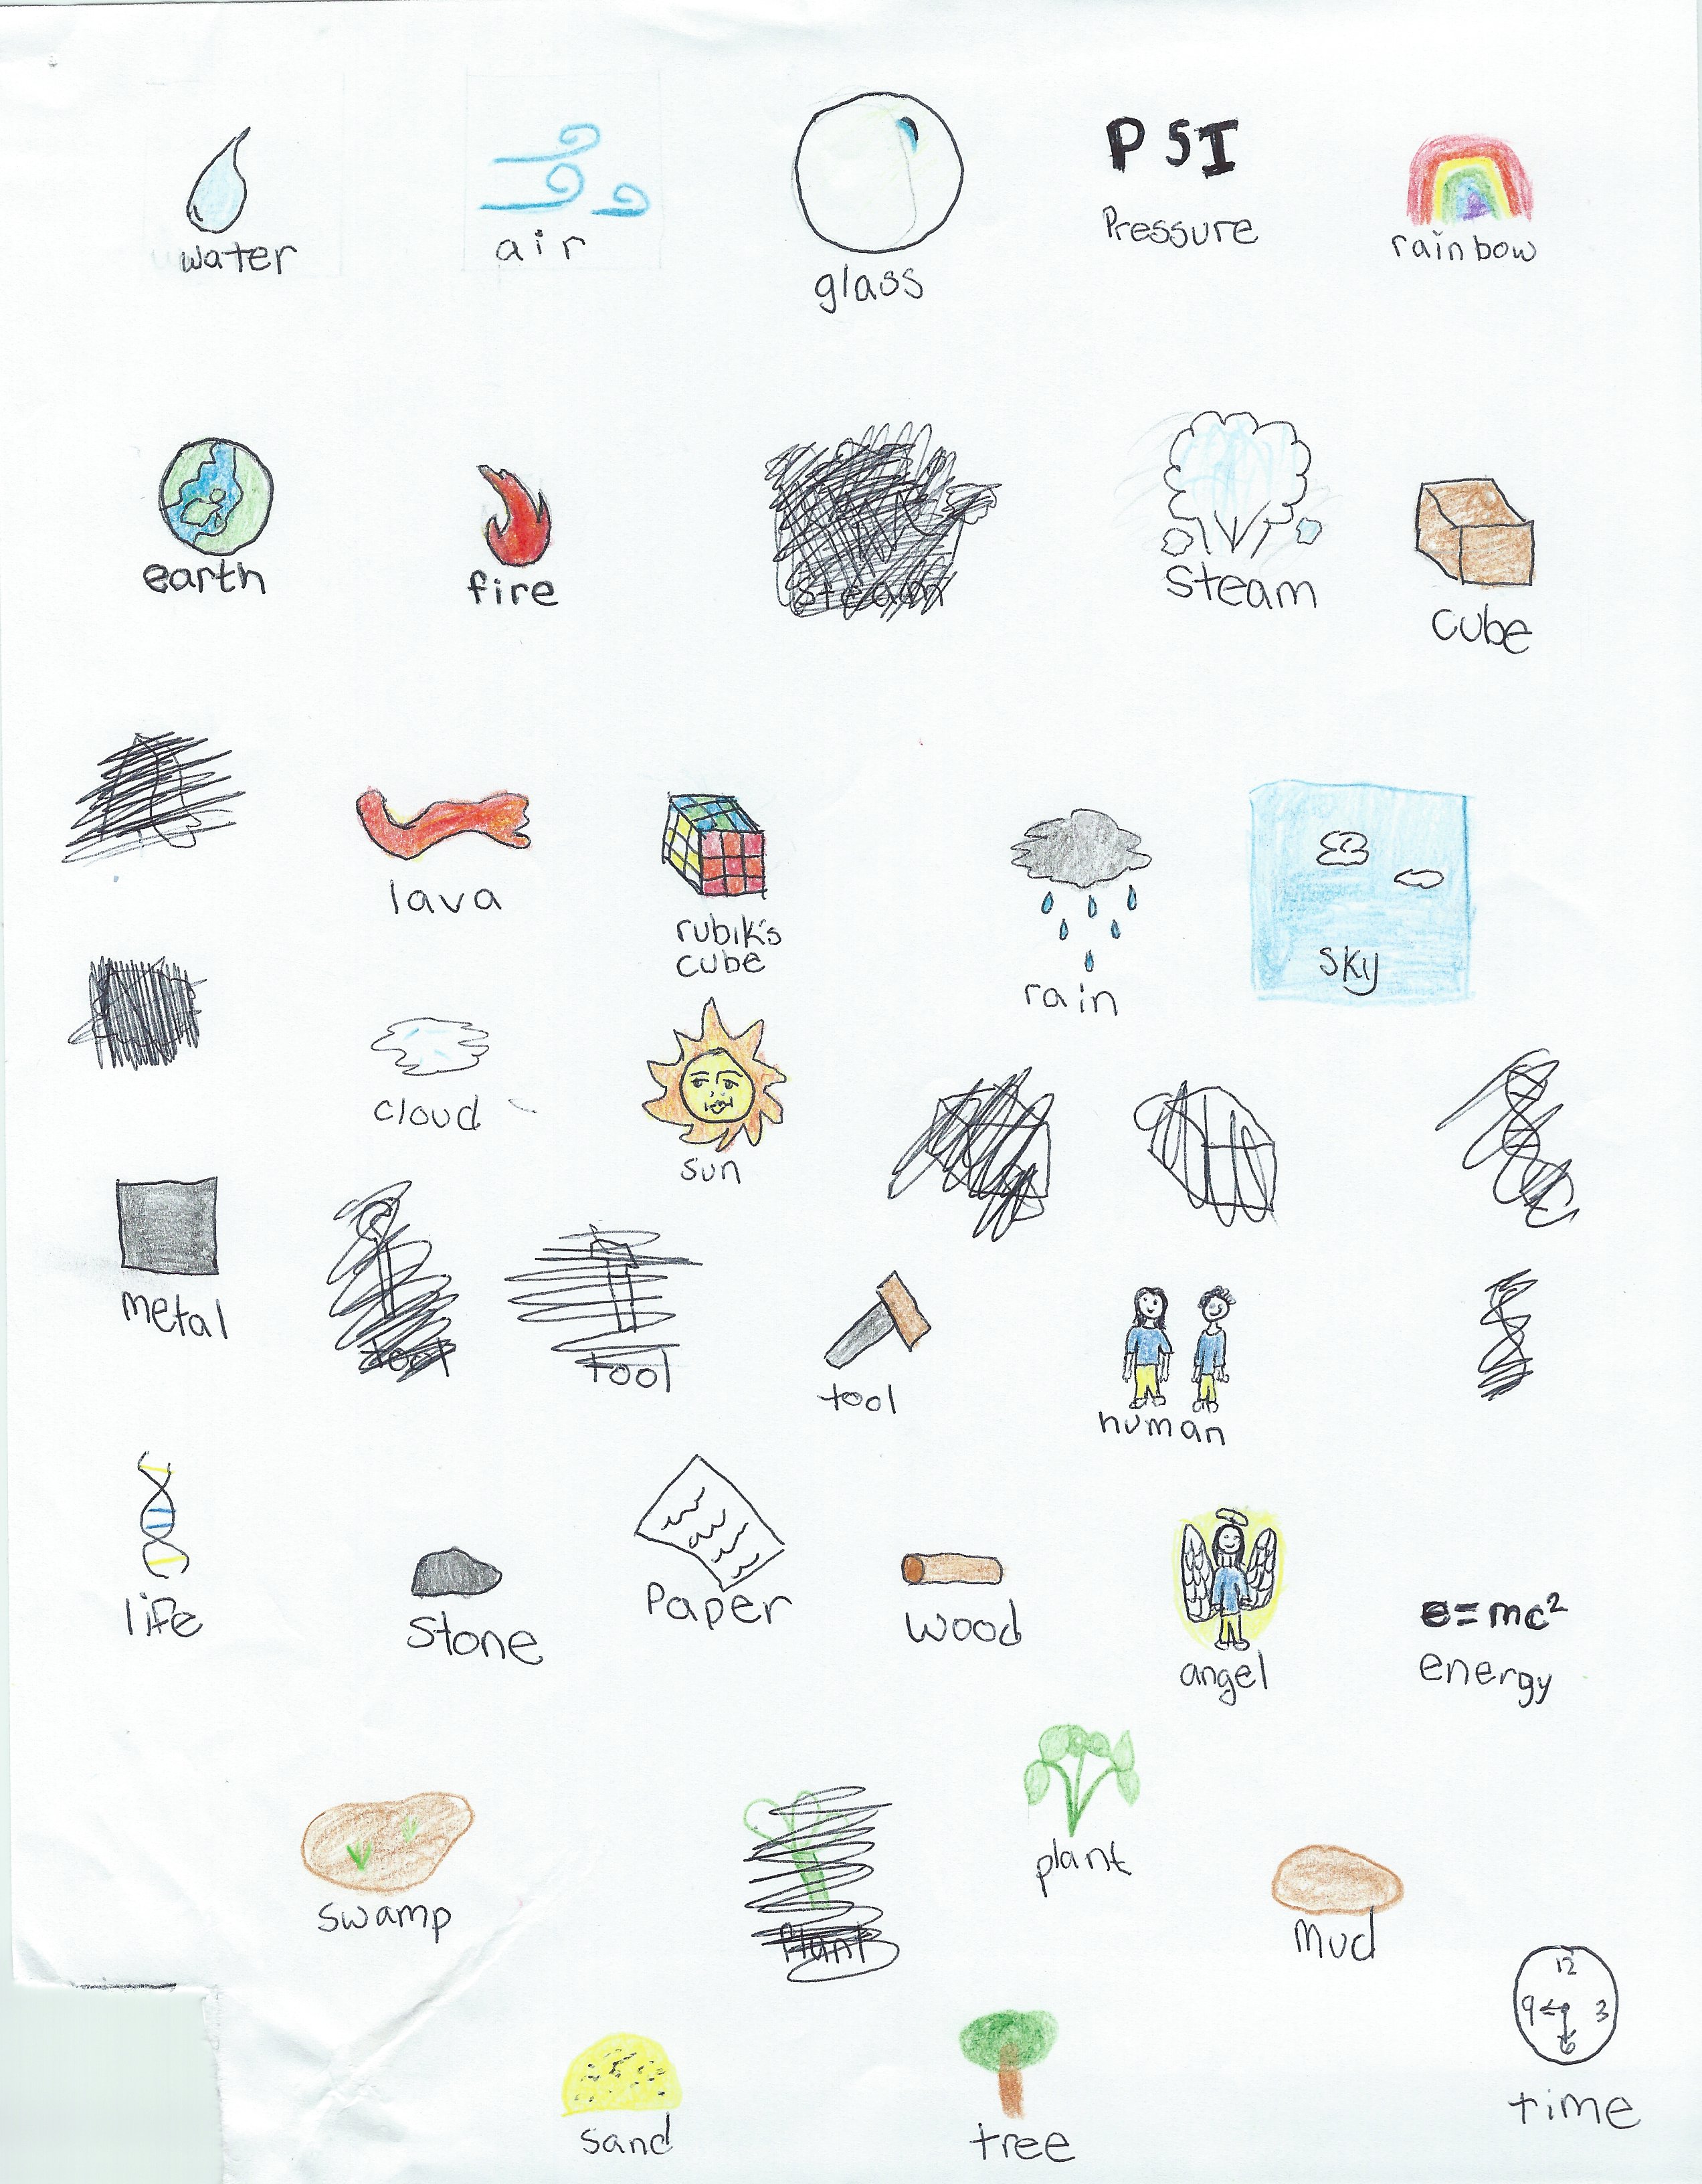 PSI
water
air
glass
Pressure
rainbow
earth
fire
steam
steam
cube
lava
rubik's
cube
rain
sky
cloud
sun
metal
tool
tool
tool
human
life
stone
Paper
wood
angel
e=mc²
energy
swamp
Plant
plant
mud
12
9
3
6
sand
tree
time